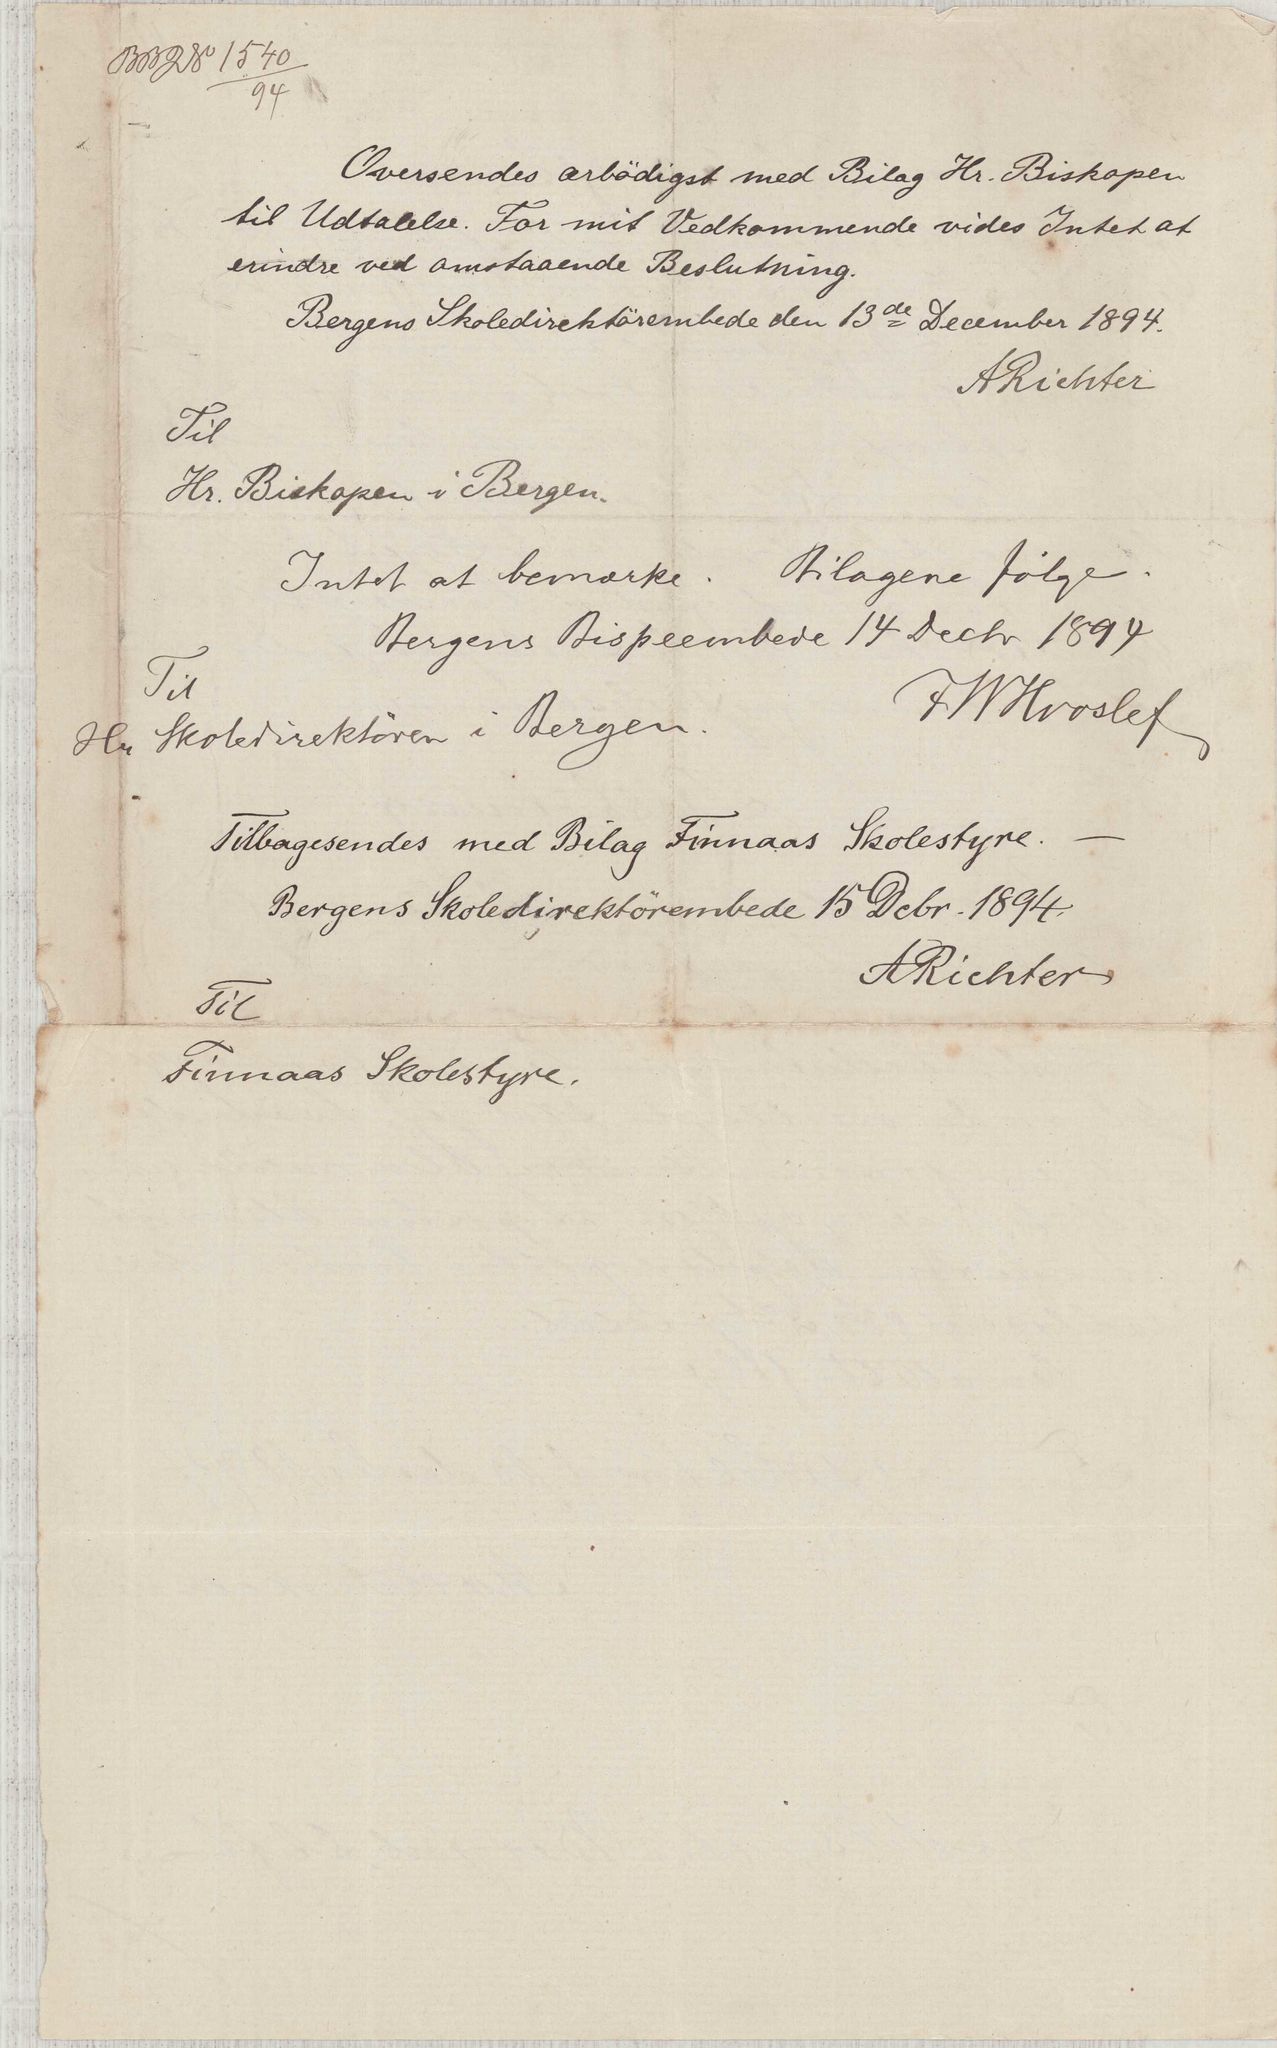 BBJNo 1540
94
Oversendes ærbödigst med Bilag Hr. Biskopen
til Udtalelse. For mit Vedkommende vides Intet at
erindre ved omstaaende Beslutning.
Bergens Skoledirektörembede den 13de December 1894.
ARichter
Til
Hr. Biskopen i Bergen.
Intet at bemærke. Bilagene følge.
Bergens Bispeembede 14 Decbr 1894
FWHvoslef
Til
Hr Skoledirektören i Bergen.
Tilbagesendes med Bilag Finnaas Skolestyre. —
Bergens Skoledirektörembede 15 Dcbr. 1894.
ARichter
Til
Finnaas Skolestyre.